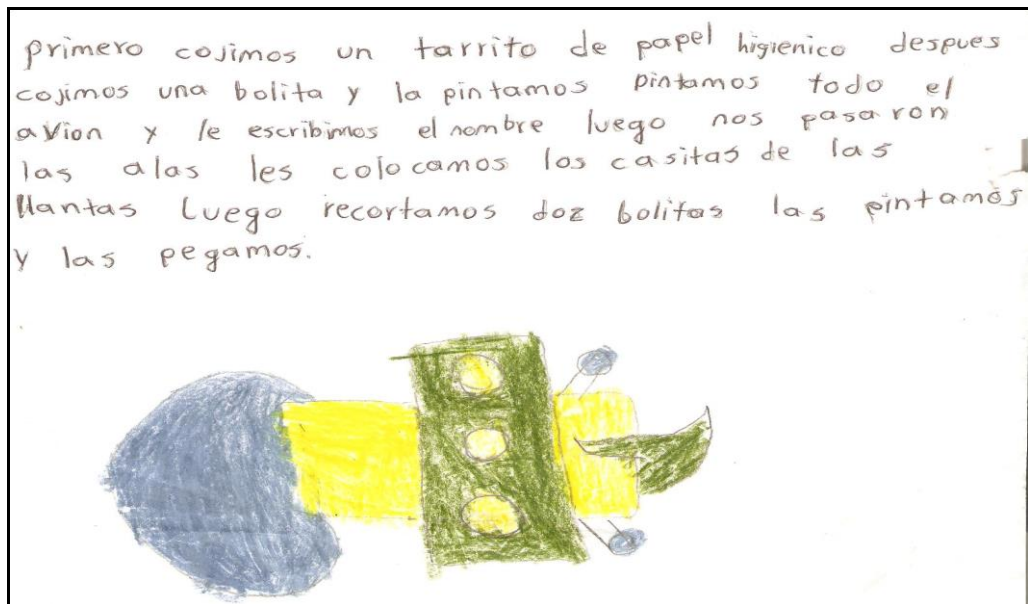 primero cojimos un tarrito de papel higienico despues
cojimos una bolita y la pintamos pintamos todo el
avion y le escribimos el nombre luego nos pasaron
las alas les colocamos los casitas de las
llantas Luego recortamos doz bolitas las pintamos
y las pegamos.